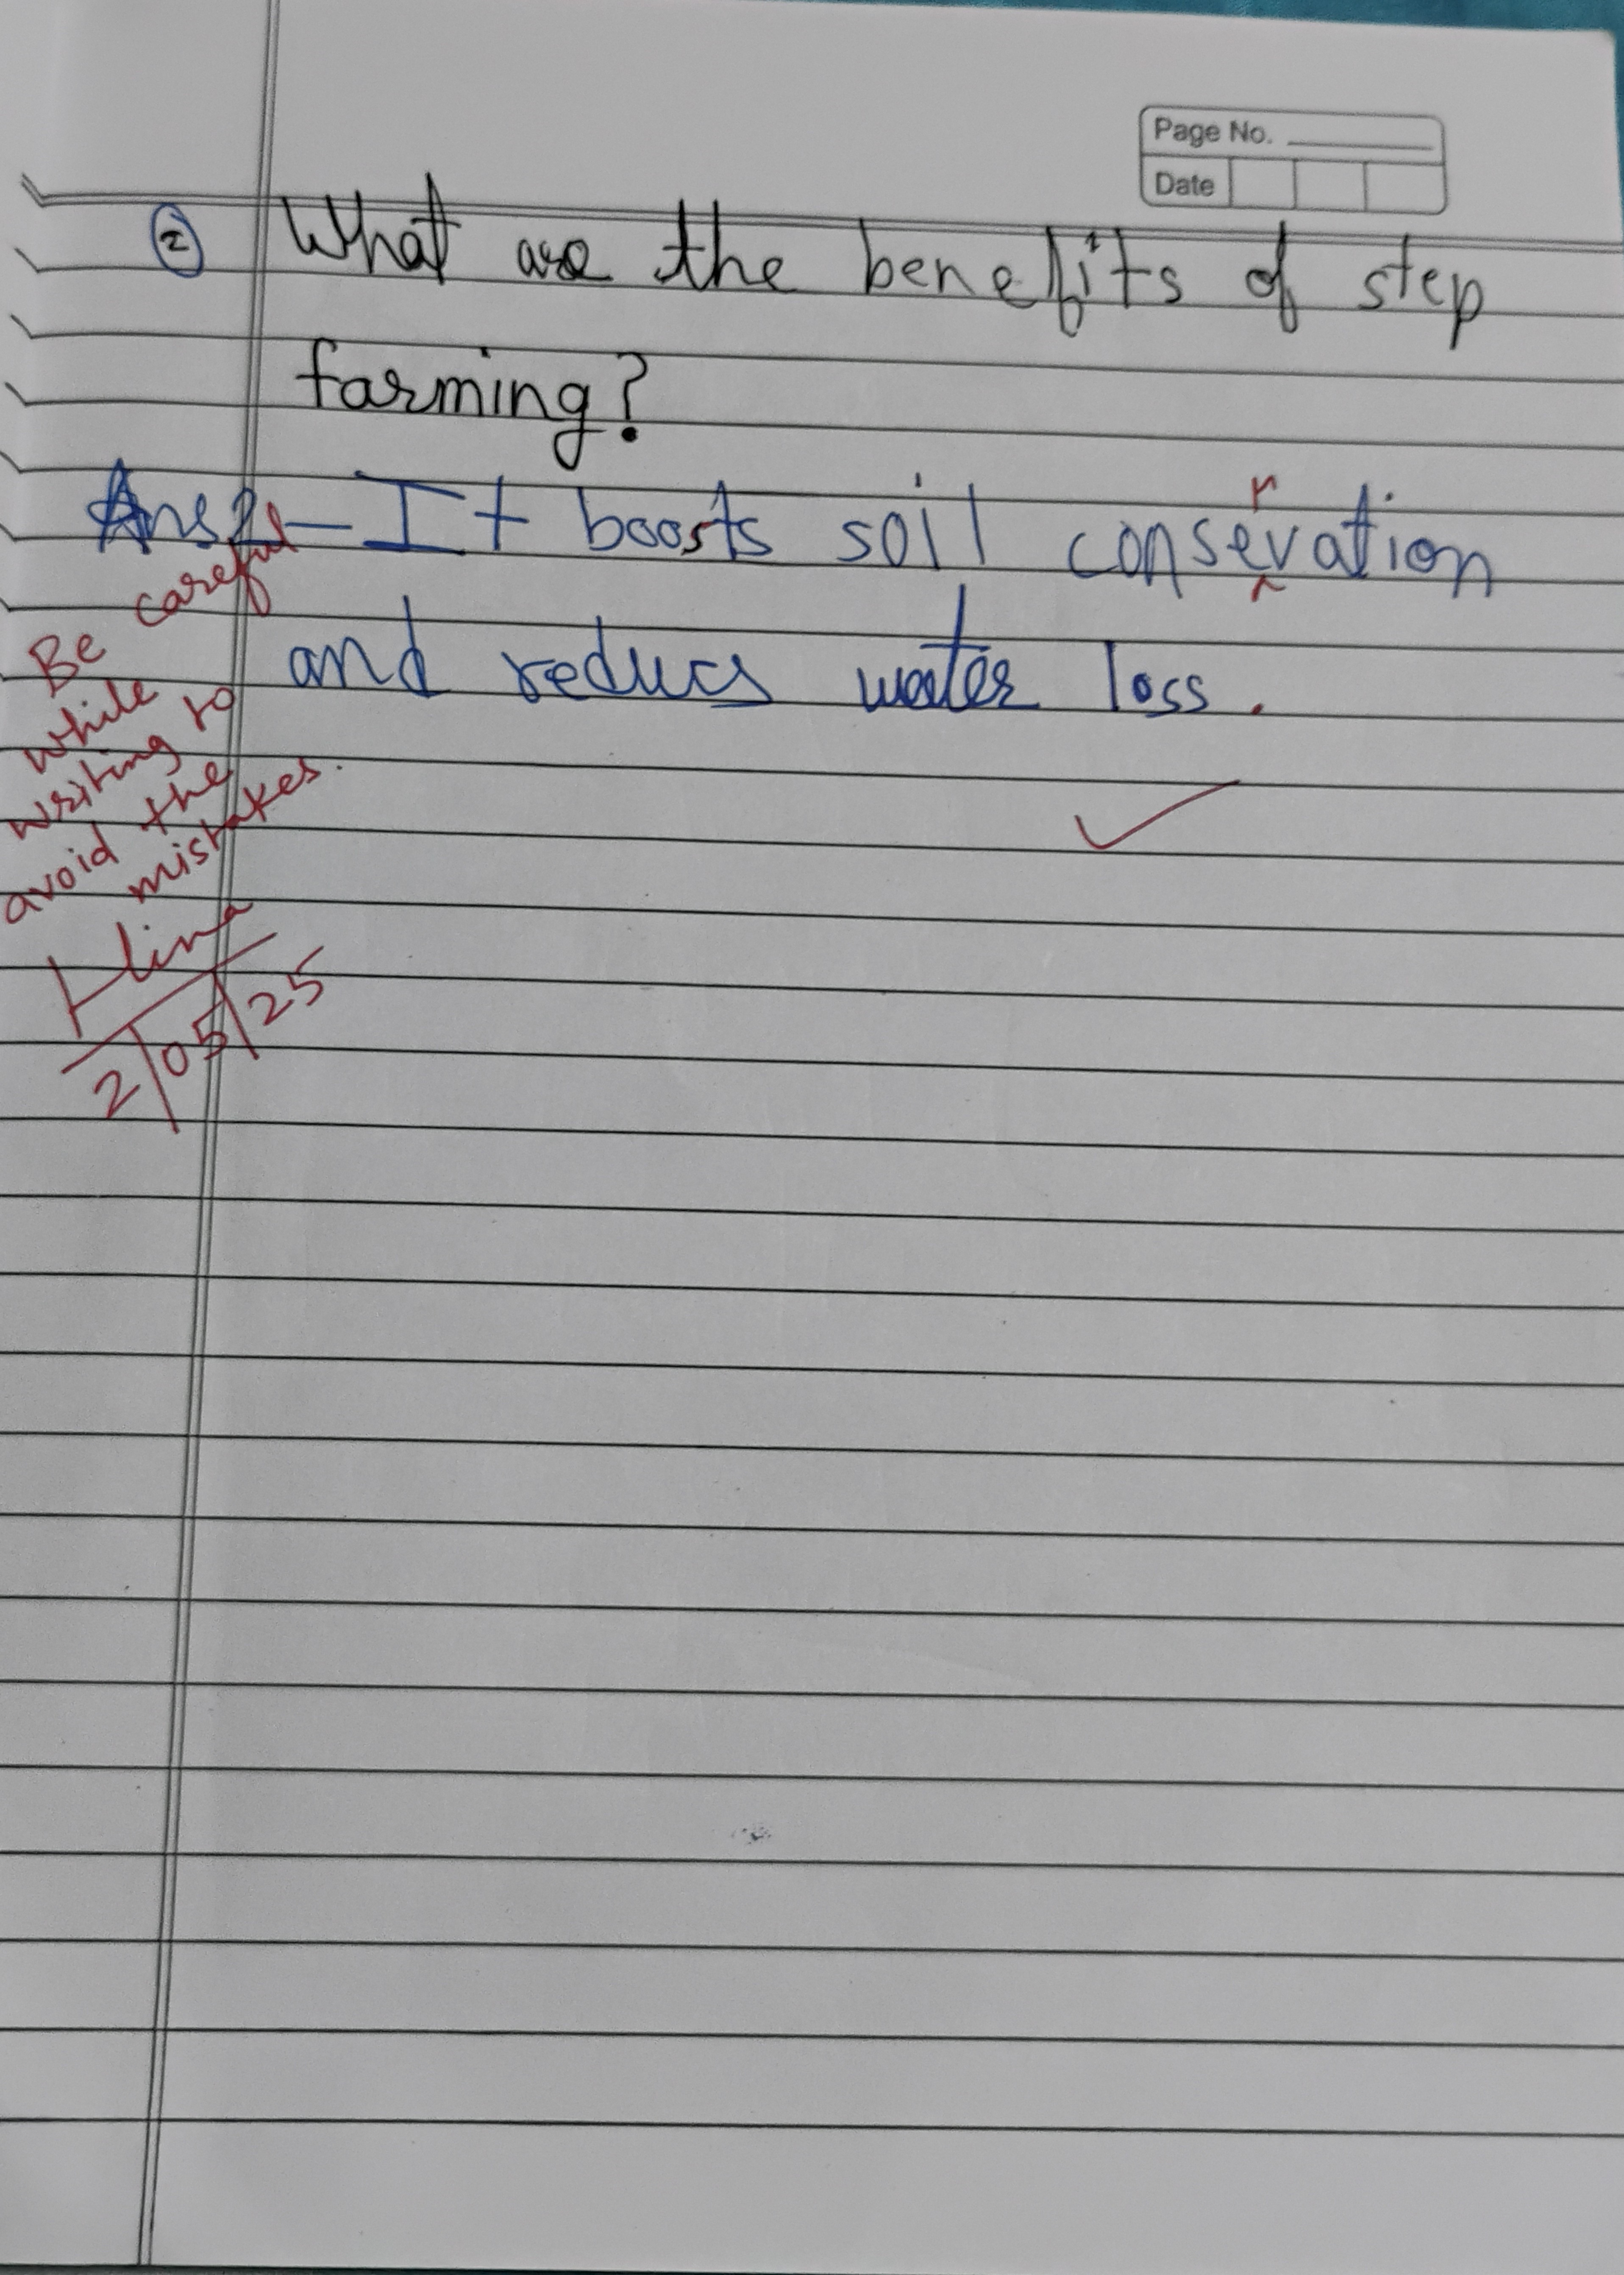 Page No.
Date
2 What are the benefits of step
farming?
Ans2 – It boosts soil consevation
r
and reducs water loss.
Be careful
while
writing to
avoid the
mistakes.
Hina
2/05/25